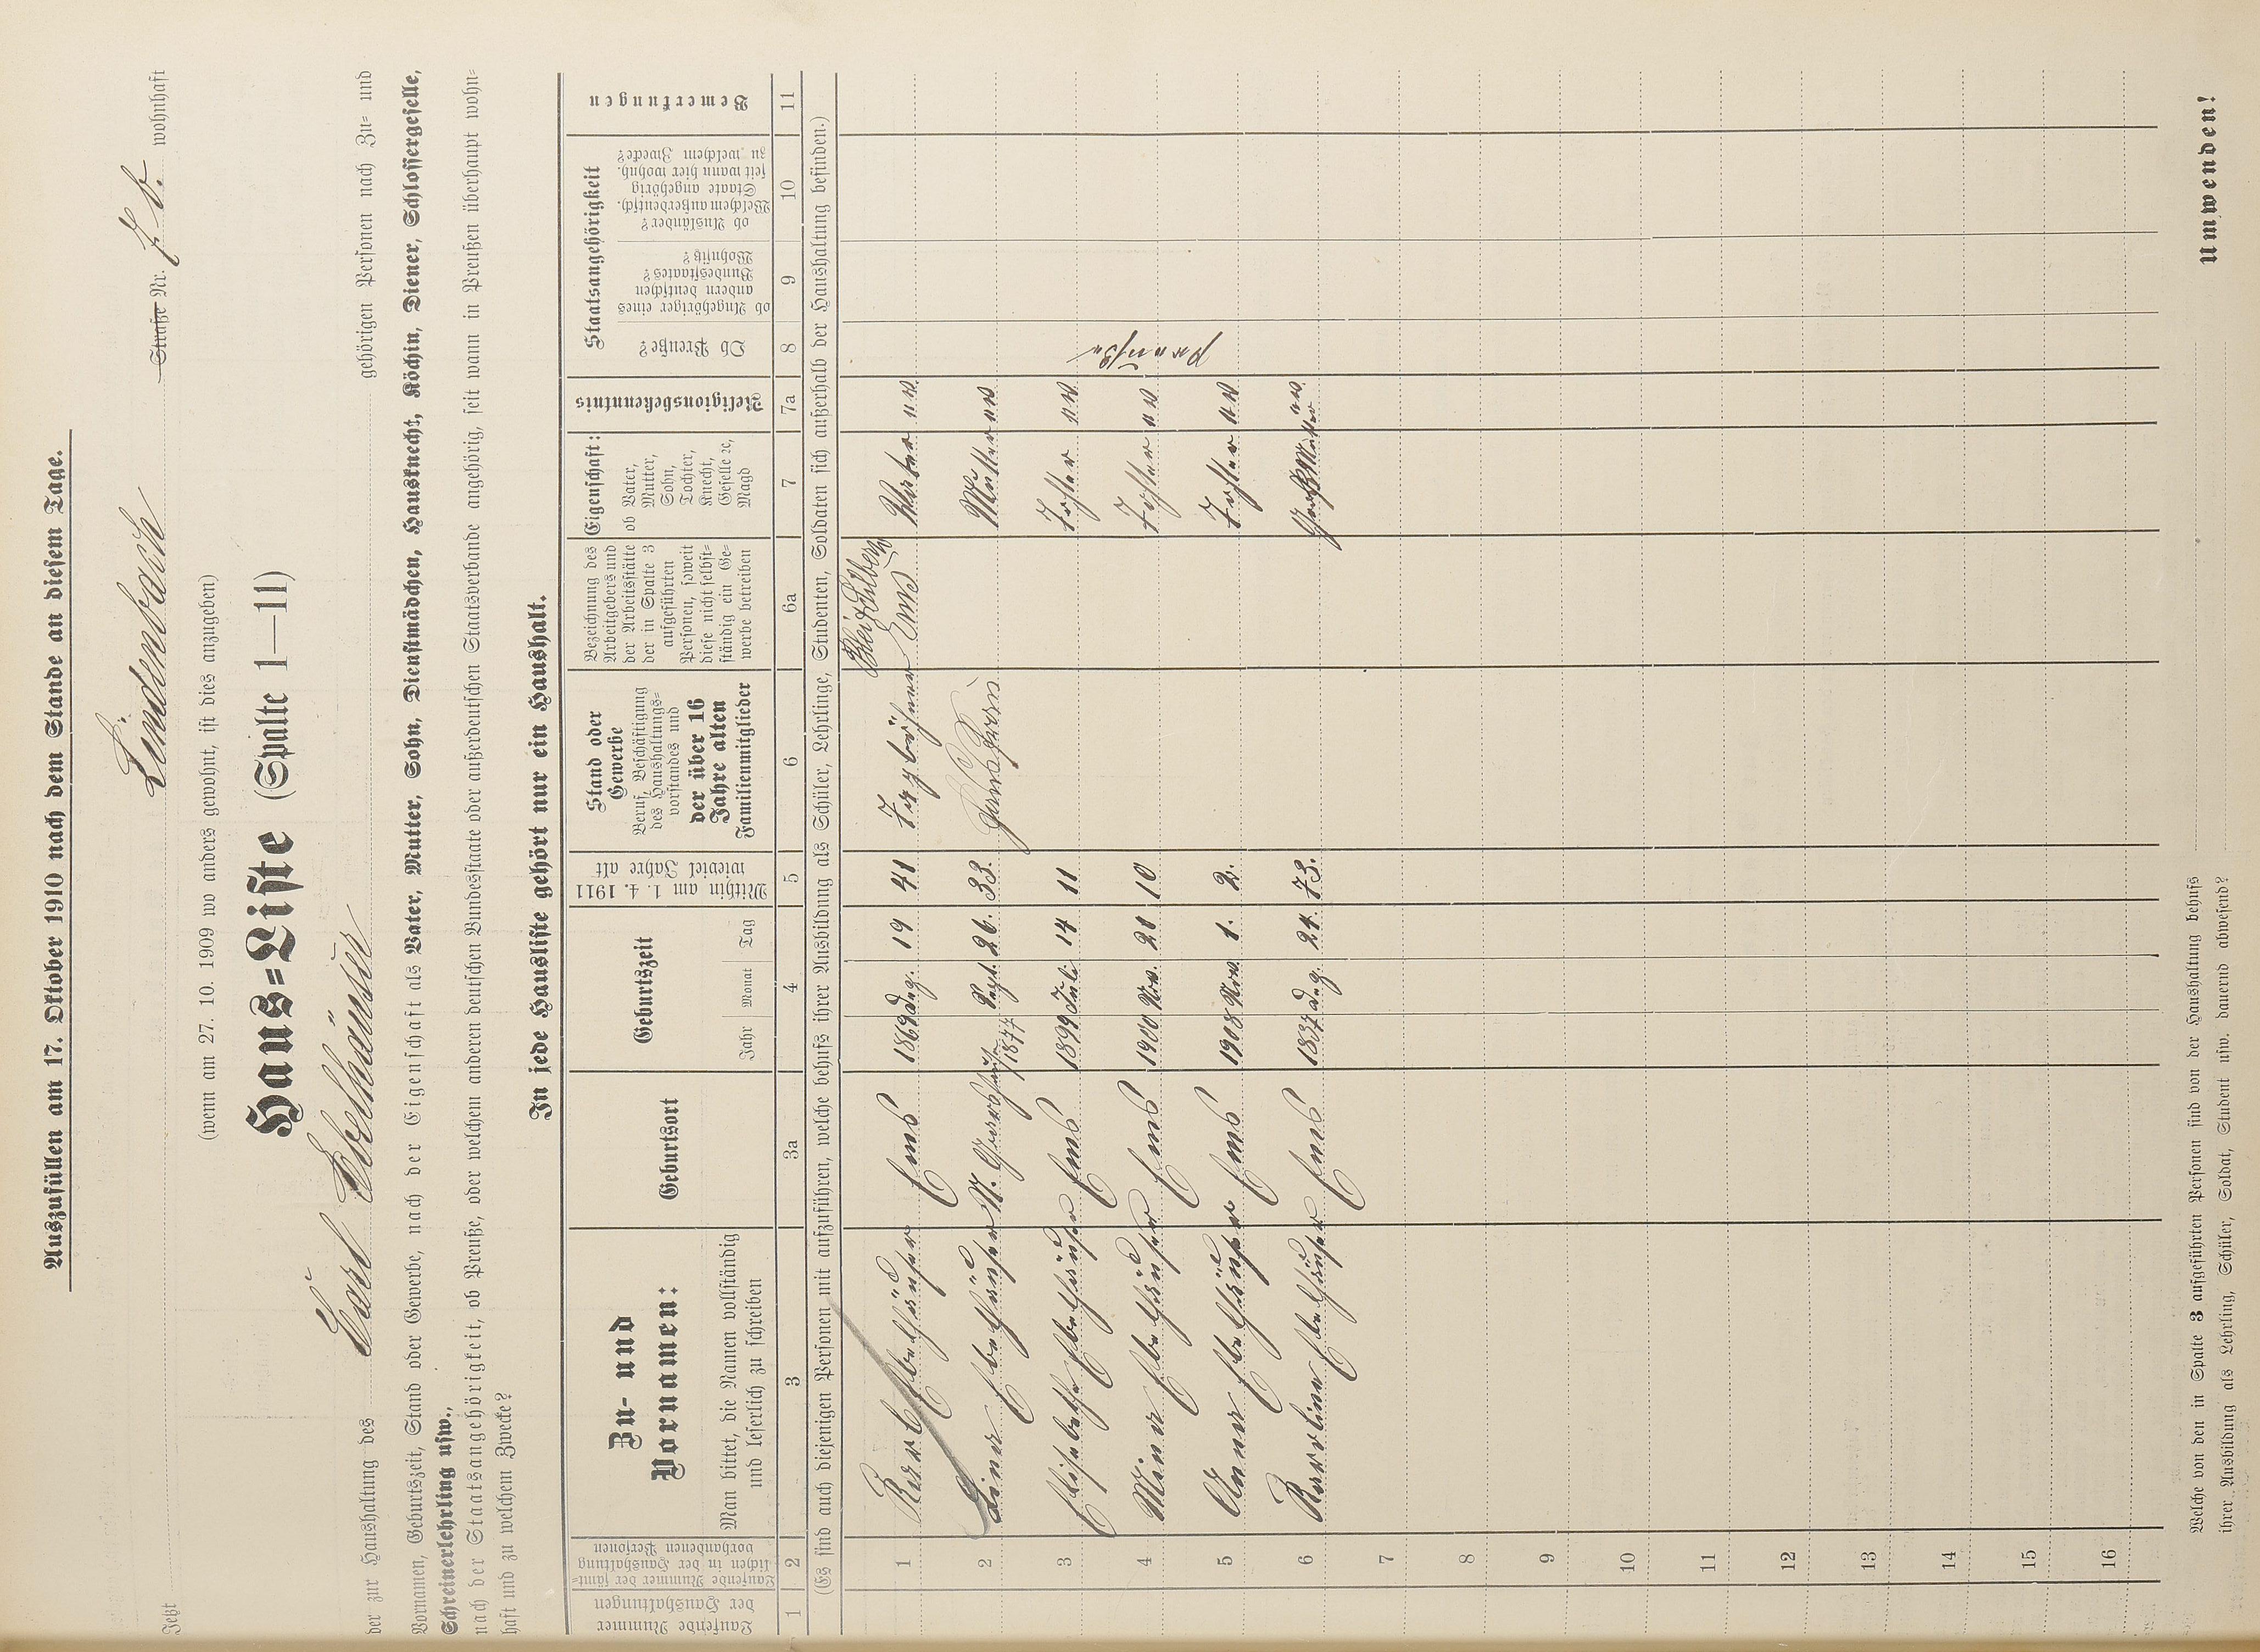 Auszufüllen am 17. Oktober 1910 nach dem Stande an diesem Tage.
Jetzt Lindenbach Straße Nr. 7 b. wohnhaft
(wenn am 27. 10. 1909 wo anders gewohnt, ist dies anzugeben)
Haus=Liste (Spalte 1—11)
der zur Haushaltung des Karl Ebelhäuser gehörigen Personen nach Zu= und
Vornamen, Geburtszeit, Stand oder Gewerbe, nach der Eigenschaft als Vater, Mutter, Sohn, Dienstmädchen, Hausknecht, Köchin, Diener, Schlossergeselle,
Schreinerlehrling usw.,
nach der Staatsangehörigkeit, ob Preuße, oder welchem anderen deutschen Bundesstaate oder außerdeutschen Staatsverbande angehörig, seit wann in Preußen überhaupt wohn=
haft und zu welchem Zwecke?
In jede Hausliste gehört nur ein Haushalt.
Laufende Nummer der Haushaltungen
Laufende Nummer der sämt=lichen in der Haushaltung vorhandenen Personen
Zu- und Vornamen:
Man bittet, die Namen vollständig und leserlich zu schreiben
Geburtsort
Geburtszeit
Jahr Monat Tag
Mithin am 1. 4. 1911 wieviel Jahre alt
Stand oder Gewerbe
Beruf, Beschäftigung des Haushaltungs=vorstandes und der über 16 Jahre alten Familienmitglieder
Bezeichnung des Arbeitgebers und der Arbeitsstätte der in Spalte 3 aufgeführten Personen, soweit diese nicht selbst=ständig ein Ge=werbe betreiben
Eigenschaft:
ob Vater, Mutter, Sohn, Tochter, Knecht, Geselle ꝛc, Magd
Religionsbekenntnis
Staatsangehörigkeit
Ob Preuße?
ob Angehöriger eines andern deutschen Bundesstaates? Wohnsitz?
ob Ausländer? Welchem außerdeutsch. Staate angehörig seit wann hier wohnh. zu welchem Zwecke?
Bemerkungen
1 2 3 3a 4 5 6 6a 7 7a 8 9 10 11
(Es sind auch diejenigen Personen mit aufzuführen, welche behufs ihrer Ausbildung als Schüler, Lehrlinge, Studenten, Soldaten sich außerhalb der Haushaltung befinden.)
1 Karl Ebelhäuser Ems 1869 Aug. 19 41 Taglöhner Blei & Silberw Ems Vater ev
2 Lina Ebelhäuser 1877 Sept. 26. 33. Hausfrau Mutter ev
3 Elisabetha Ebelhäuser Ems 1899 Juli 14 11 Tochter ev
4 Mina Ebelhäuser Ems 1900 Nov. 21 10 Tochter ev Preuße
5 Anna Ebelhäuser Ems 1908 Nov. 1. 2. Tochter ev
6 Karolina Ebelhäuser Ems 1837 Aug. 21. 73. Großmutter ev
7
8
9
10
11
12
13
14
15
16
Welche von den in Spalte 3 aufgeführten Personen sind von der Haushaltung behufs
ihrer Ausbildung als Lehrling, Schüler, Soldat, Student usw. dauernd abwesend?
Umwenden!